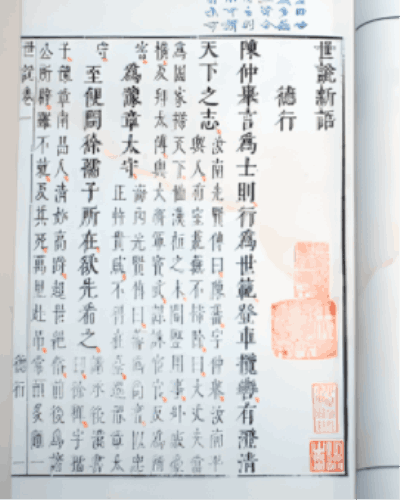 世說新語
德行
陳仲舉言爲士則行爲世範登車攬轡有澄清
天下之志
汝南先賢傳曰陳蕃字仲舉汝南平
輿人有室荒蕪不掃除曰大丈夫當
爲國家掃天下值漢桓之末閹豎用事外戚豪
橫及拜太傅與大將軍竇武謀誅宦官反爲所
害
爲豫章太守
海內先賢傳曰蕃爲尚書以忠
正忤貴戚不得在臺遷豫章太
守
至便問徐孺子所在欲先看之
謝承後漢書
曰徐穉字孺
子豫章南昌人清妙高跱超世絕俗前後爲諸
公所辟雖不就及其死萬里赴弔常預炙雞一
世說卷一
德行
一